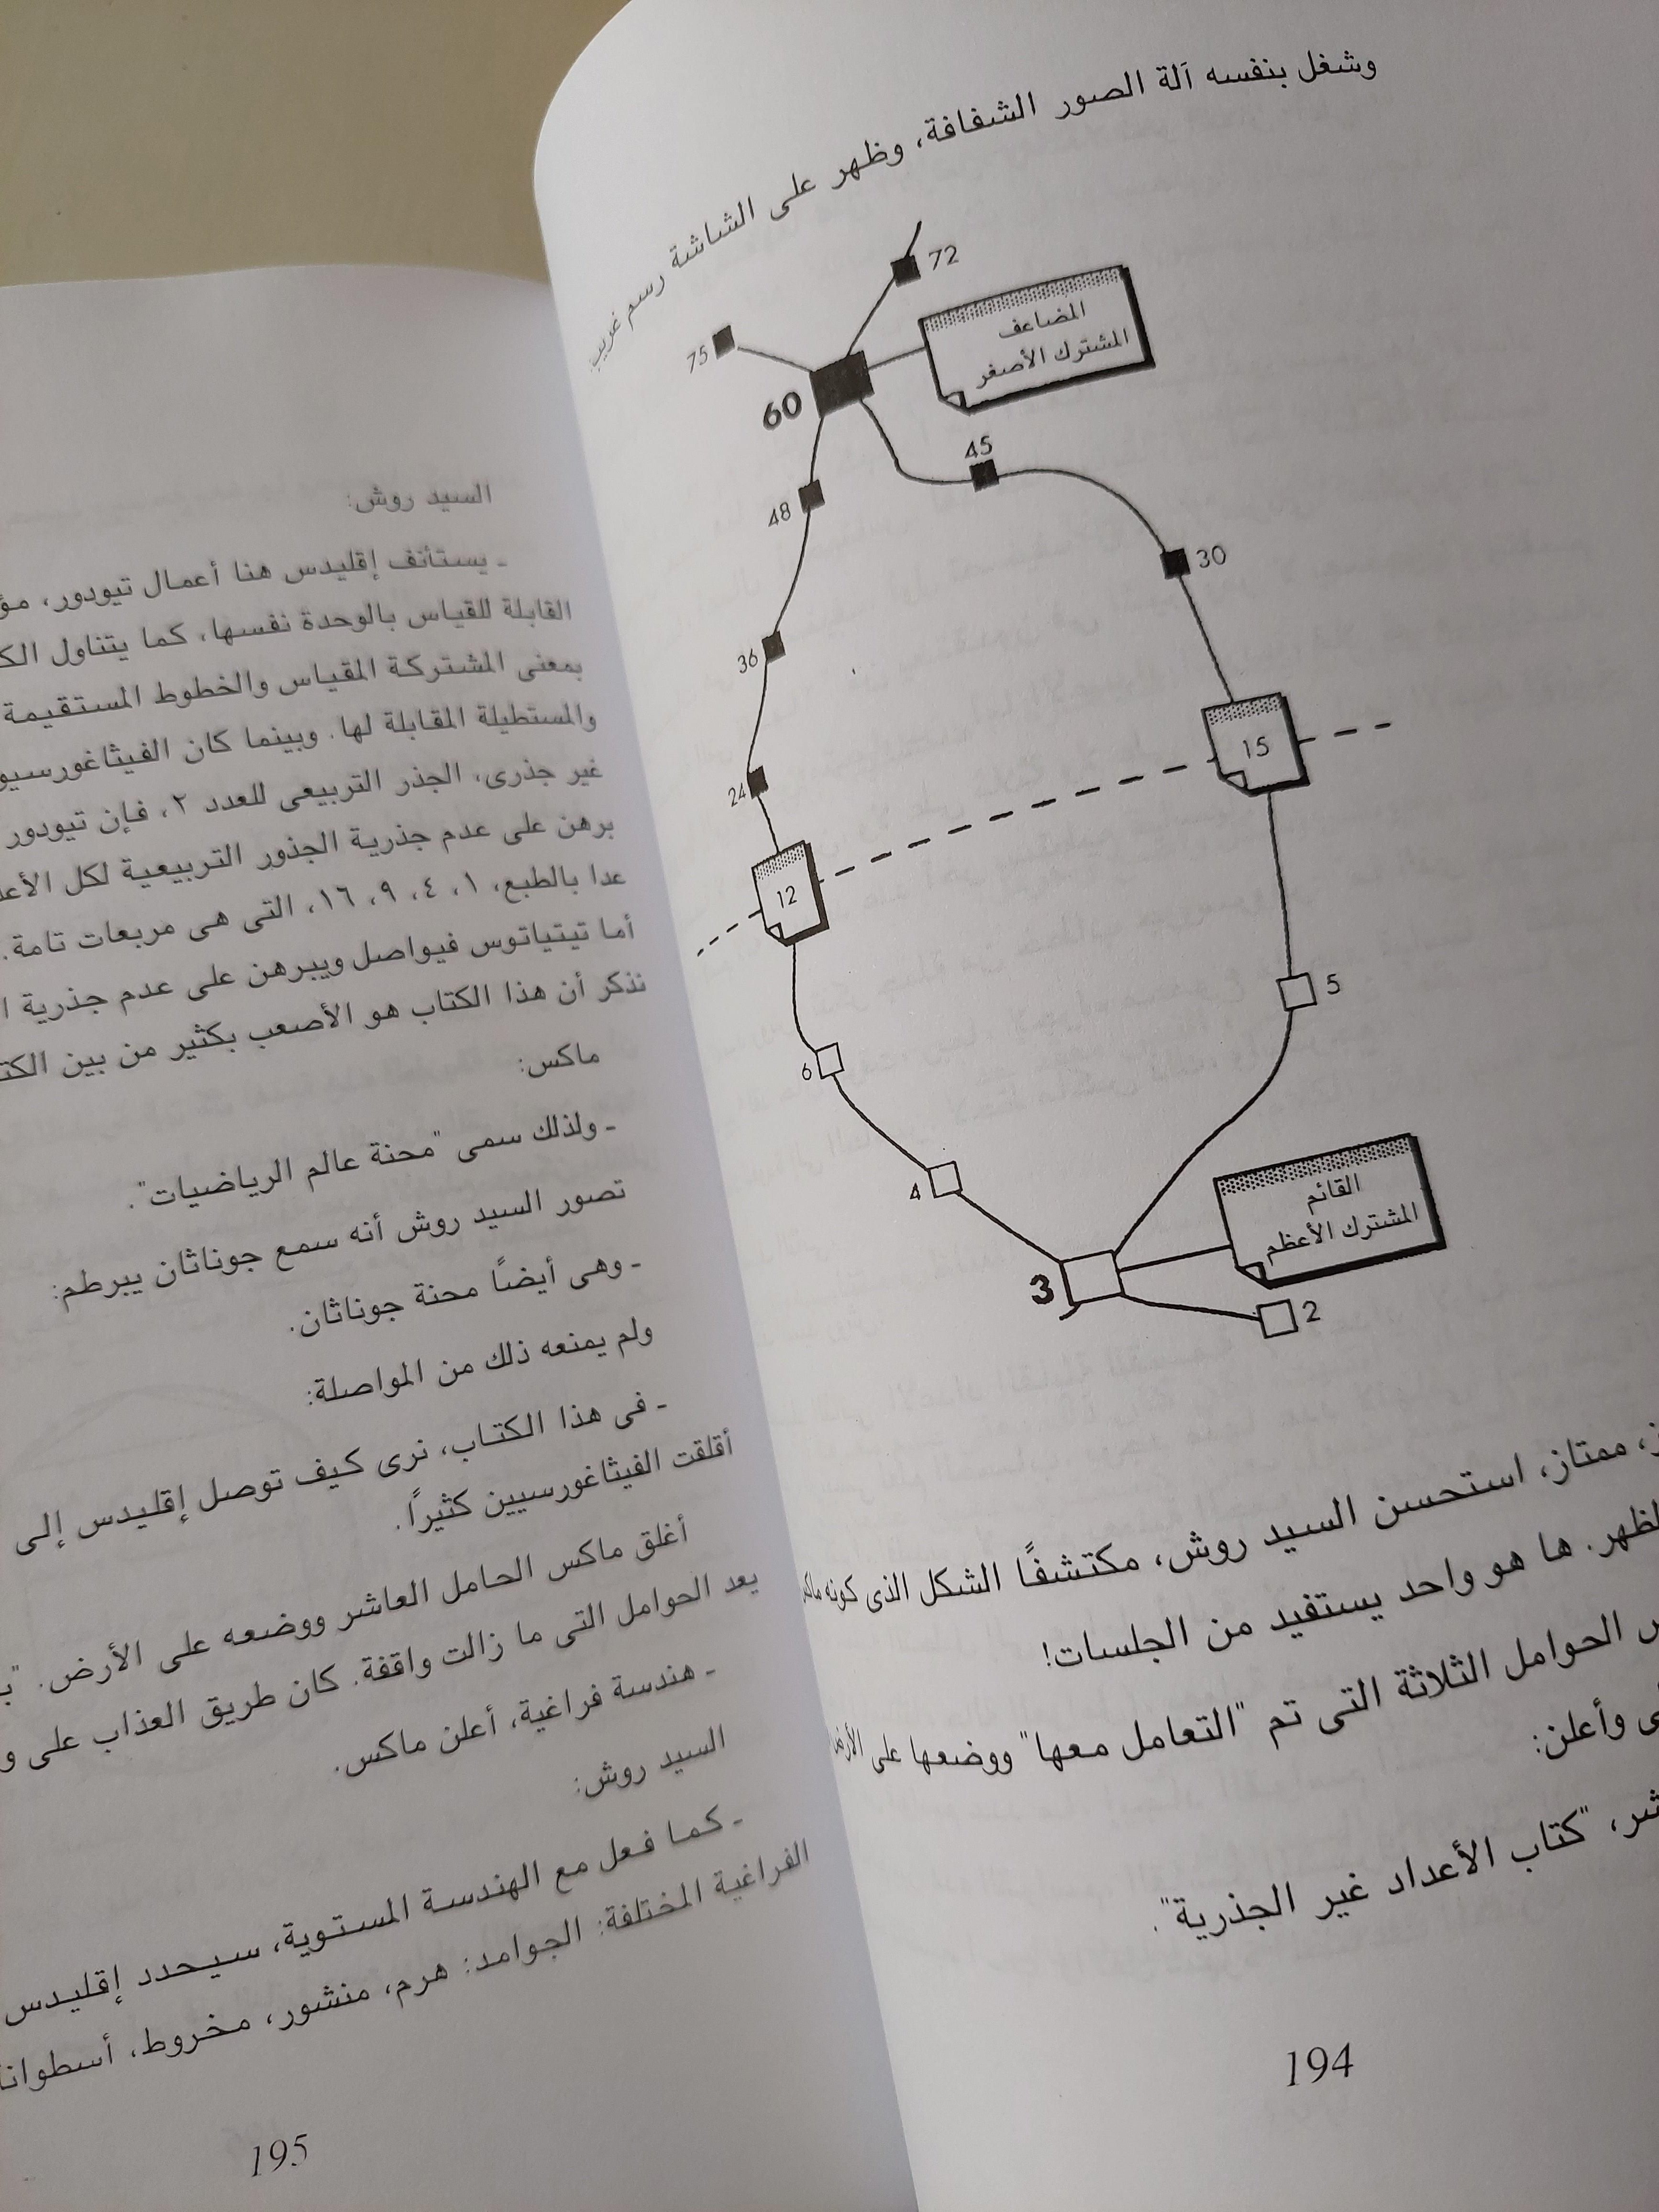 وشغل بنفسه آلة الصور الشفافة، وظهر على الشاشة رسم غريب:
72
75
المضاعف
المشترك الأصغر
60
45
48
30
36
15
24
12
5
6
4
القائم
المشترك الأعظم
3
2
ممتاز، استحسن السيد روش، مكتشفًا الشكل الذى كونه
ها هو واحد يستفيد من الجلسات!
الحوامل الثلاثة التى تم "التعامل معها" ووضعها على الأرض
وأعلن:
"كتاب الأعداد غير الجذرية".
194
السيد روش:
ـ يستأنف إقليدس هنا أعمال تيودور،
القابلة للقياس بالوحدة نفسها، كما يتناول
بمعنى المشتركة المقياس والخطوط المستقيمة
والمستطيلة المقابلة لها. وبينما كان
غير جذرى، الجذر التربيعى للعدد ٢، فإن تيودور
برهن على عدم جذرية الجذور التربيعية لكل
عدا بالطبع، ١، ٤، ٩، ١٦، التى هى مربعات تامة.
أما تيتياتوس فيواصل ويبرهن على عدم جذرية
نذكر أن هذا الكتاب هو الأصعب بكثير من بين
ماكس:
ـ ولذلك سمى "محنة عالم الرياضيات".
تصور السيد روش أنه سمع جوناثان يبرطم:
ـ وهى أيضًا محنة جوناثان.
ولم يمنعه ذلك من المواصلة:
ـ فى هذا الكتاب، نرى كيف توصل إقليدس إلى
أقلقت الفيثاغورسيين كثيرًا.
أغلق ماكس الحامل العاشر ووضعه على الأرض.
يعد الحوامل التى ما زالت واقفة. كان طريق العذاب على
ـ هندسة فراغية، أعلن ماكس.
السيد روش:
ـ كما فعل مع الهندسة المستوية، سيحدد إقليدس
الفراغية المختلفة: الجوامد: هرم، منشور، مخروط،
195